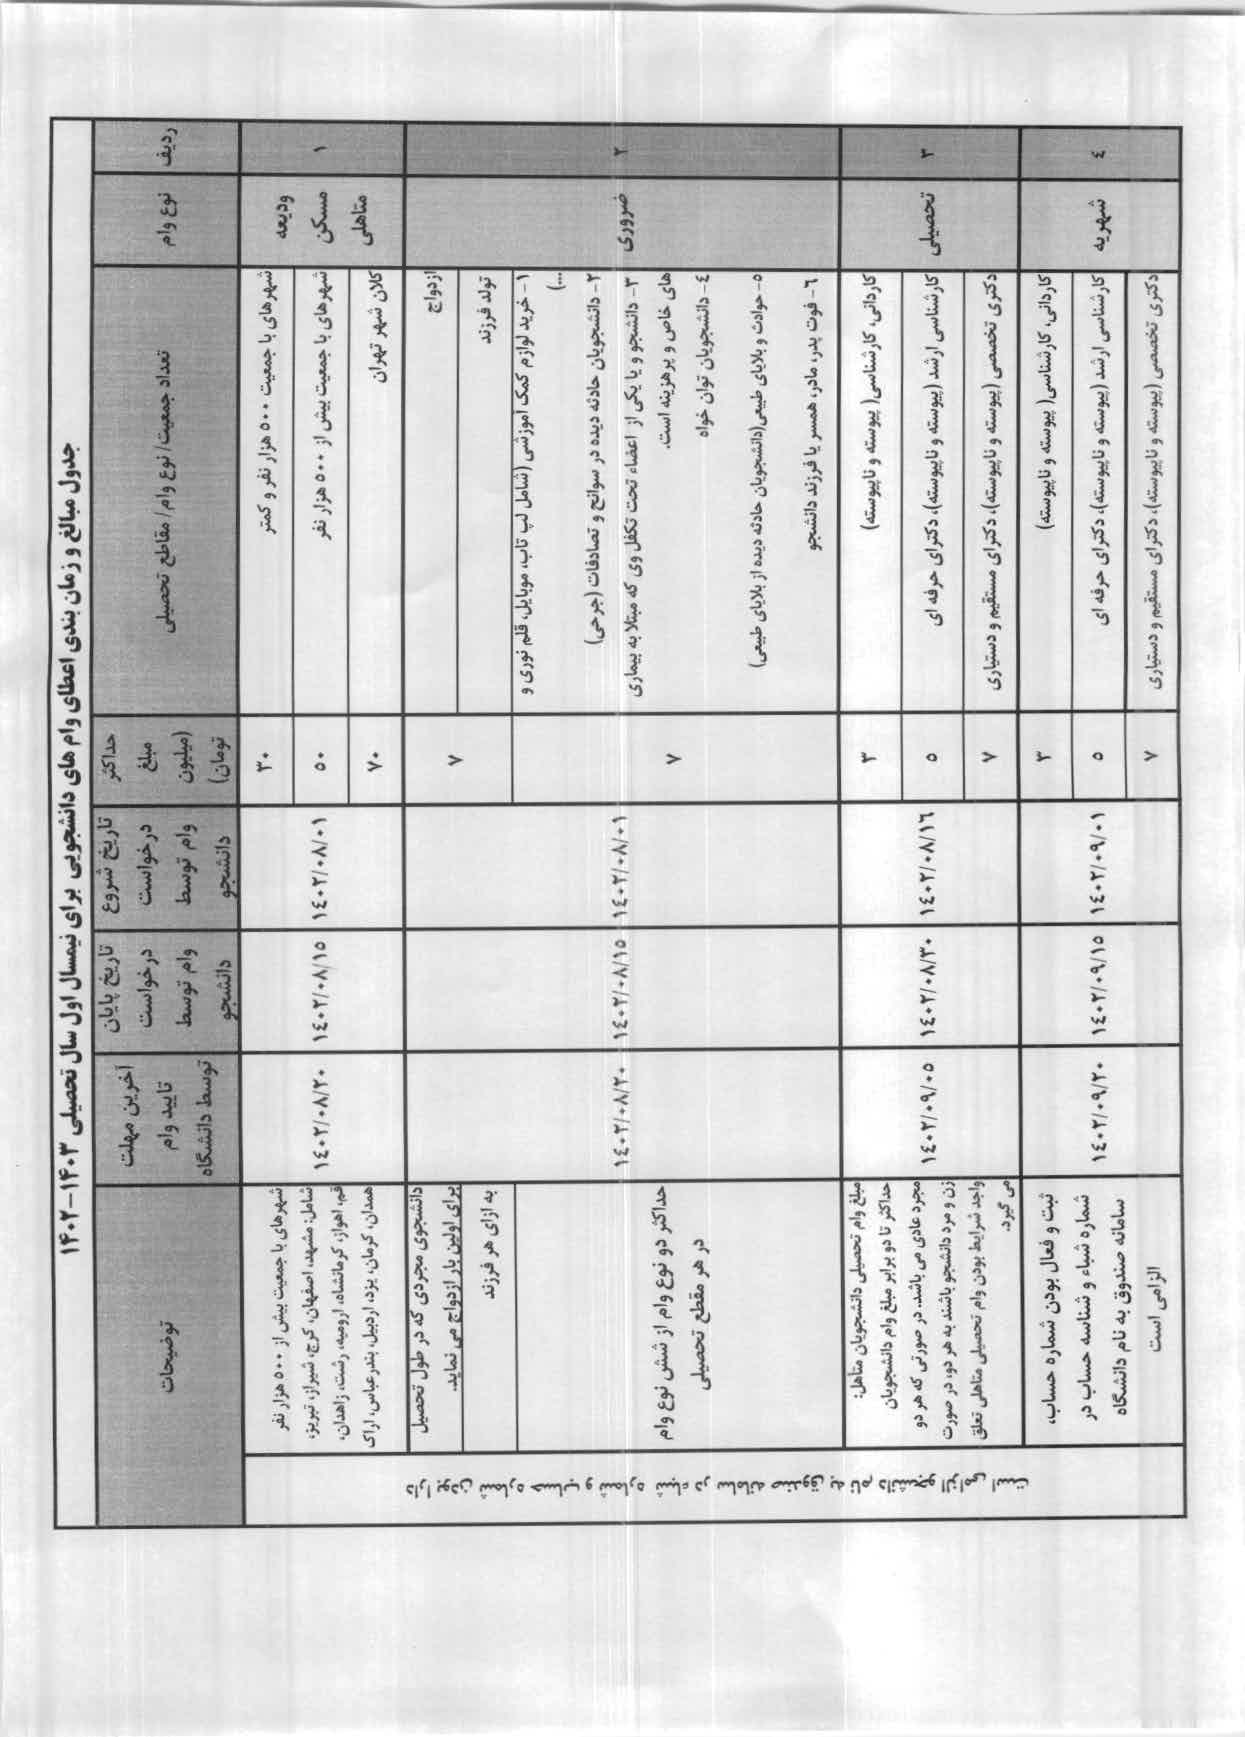 جدول مبالغ و زمان بندی اعطای وام های دانشجویی برای نیمسال اول سال تحصیلی ۱۴۰۳-۱۴۰۲
ردیف
نوع وام
تعداد جمعیت/ نوع وام/ مقاطع تحصیلی
حداکثر
مبلغ
(میلیون
تومان)
تاریخ شروع
درخواست
وام توسط
دانشجو
تاریخ پایان
درخواست
وام توسط
دانشجو
آخرین مهلت
تایید وام
توسط دانشگاه
توضیحات
۱
ودیعه
مسکن
متاهلی
شهرهای با جمعیت ۵۰۰ هزار نفر و کمتر
۳۰
شهرهای با جمعیت بیش از ۵۰۰ هزار نفر
۵۰
کلان شهر تهران
۷۰
۱٤۰۲/۰۸/۰۱
۱٤۰۲/۰۸/۱۵
۱٤۰۲/۰۸/۲۰
شهرهای با جمعیت بیش از ۵۰۰ هزار نفر
شامل: مشهد، اصفهان، کرج، شیراز، تبریز،
قم، اهواز، کرمانشاه، ارومیه، رشت، زاهدان،
همدان، کرمان، یزد، اردبیل، بندرعباس، اراک
۲
ضروری
ازدواج
تولد فرزند
۷
دانشجوی مجردی که در طول تحصیل
برای اولین بار ازدواج می نماید.
به ازای هر فرزند
۱- خرید لوازم کمک آموزشی (شامل لپ تاب، موبایل، قلم نوری و
...)
۲- دانشجویان حادثه دیده در سوانح و تصادفات (جرحی)
۳- دانشجو و یا یکی از اعضاء تحت تکفل وی که مبتلا به بیماری
های خاص و پرهزینه است.
٤- دانشجویان توان خواه
۵- حوادث و بلایای طبیعی(دانشجویان حادثه دیده از بلایای طبیعی)
٦- فوت پدر، مادر، همسر یا فرزند دانشجو
۷
۱٤۰۲/۰۸/۰۱
۱٤۰۲/۰۸/۱۵
۱٤۰۲/۰۸/۲۰
حداکثر دو نوع وام از شش نوع وام
در هر مقطع تحصیلی
۳
تحصیلی
کاردانی، کارشناسی( پیوسته و ناپیوسته)
۳
کارشناسی ارشد (پیوسته و ناپیوسته)، دکترای حرفه ای
۵
دکتری تخصصی (پیوسته و ناپیوسته)، دکترای مستقیم و دستیاری
۷
۱٤۰۲/۰۸/۱٦
۱٤۰۲/۰۸/۳۰
۱٤۰۲/۰۹/۰۵
مبلغ وام تحصیلی دانشجویان متاهل:
حداکثر تا دو برابر مبلغ وام دانشجویان
مجرد عادی می باشد. در صورتی که هر دو
زن و مرد دانشجو باشند به هر دو، در صورت
واجد شرایط بودن وام تحصیلی متاهلی تعلق
می گیرد.
٤
شهریه
کاردانی، کارشناسی( پیوسته و ناپیوسته)
۳
کارشناسی ارشد (پیوسته و ناپیوسته)، دکترای حرفه ای
۵
دکتری تخصصی (پیوسته و ناپیوسته)، دکترای مستقیم و دستیاری
۷
۱٤۰۲/۰۹/۰۱
۱٤۰۲/۰۹/۱۵
۱٤۰۲/۰۹/۲۰
ثبت و فعال بودن شماره حساب،
شماره شباء و شناسه حساب در
سامانه صندوق به نام دانشگاه
الزامی است
دارا بودن شماره حساب و شماره شباء در سامانه صندوق به نام دانشجو الزامی است